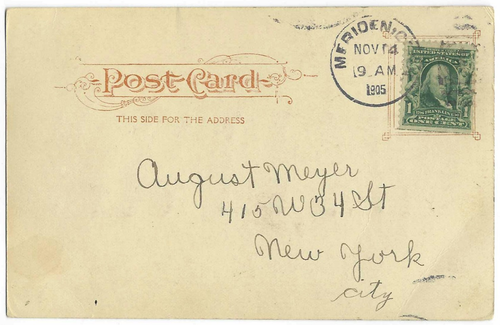 MERIDEN, C
NOV 14
9 AM
1905
POST CARD
THIS SIDE FOR THE ADDRESS
1
ONE CENT
August Meyer
415 W 34 St
New York
city